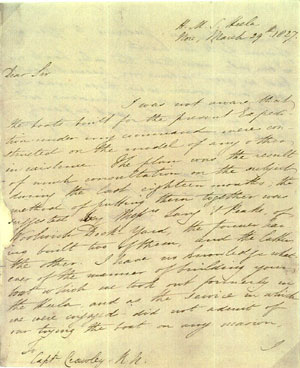 H. M. S. Hecla
Nore, March 29th 1827.
Dear Sir
I was not aware that
the boats built for the present Expedi-
tion under my command were con-
structed on the model of any other
in existence. The plan was the result
of much consultation on the subject
during the last eighteen months, the
method of putting them together was
suggested by Messrs Lang & Peake of
Woolwich Dock Yard, the former having
built two of them, and the latter
the other. I have no knowledge what-
ever of the manner of building your
boat which we took out formerly in
the Hecla, and as the Service in which
we were engaged did not admit of
our trying the boat on any occasion
I
Captn R. N.